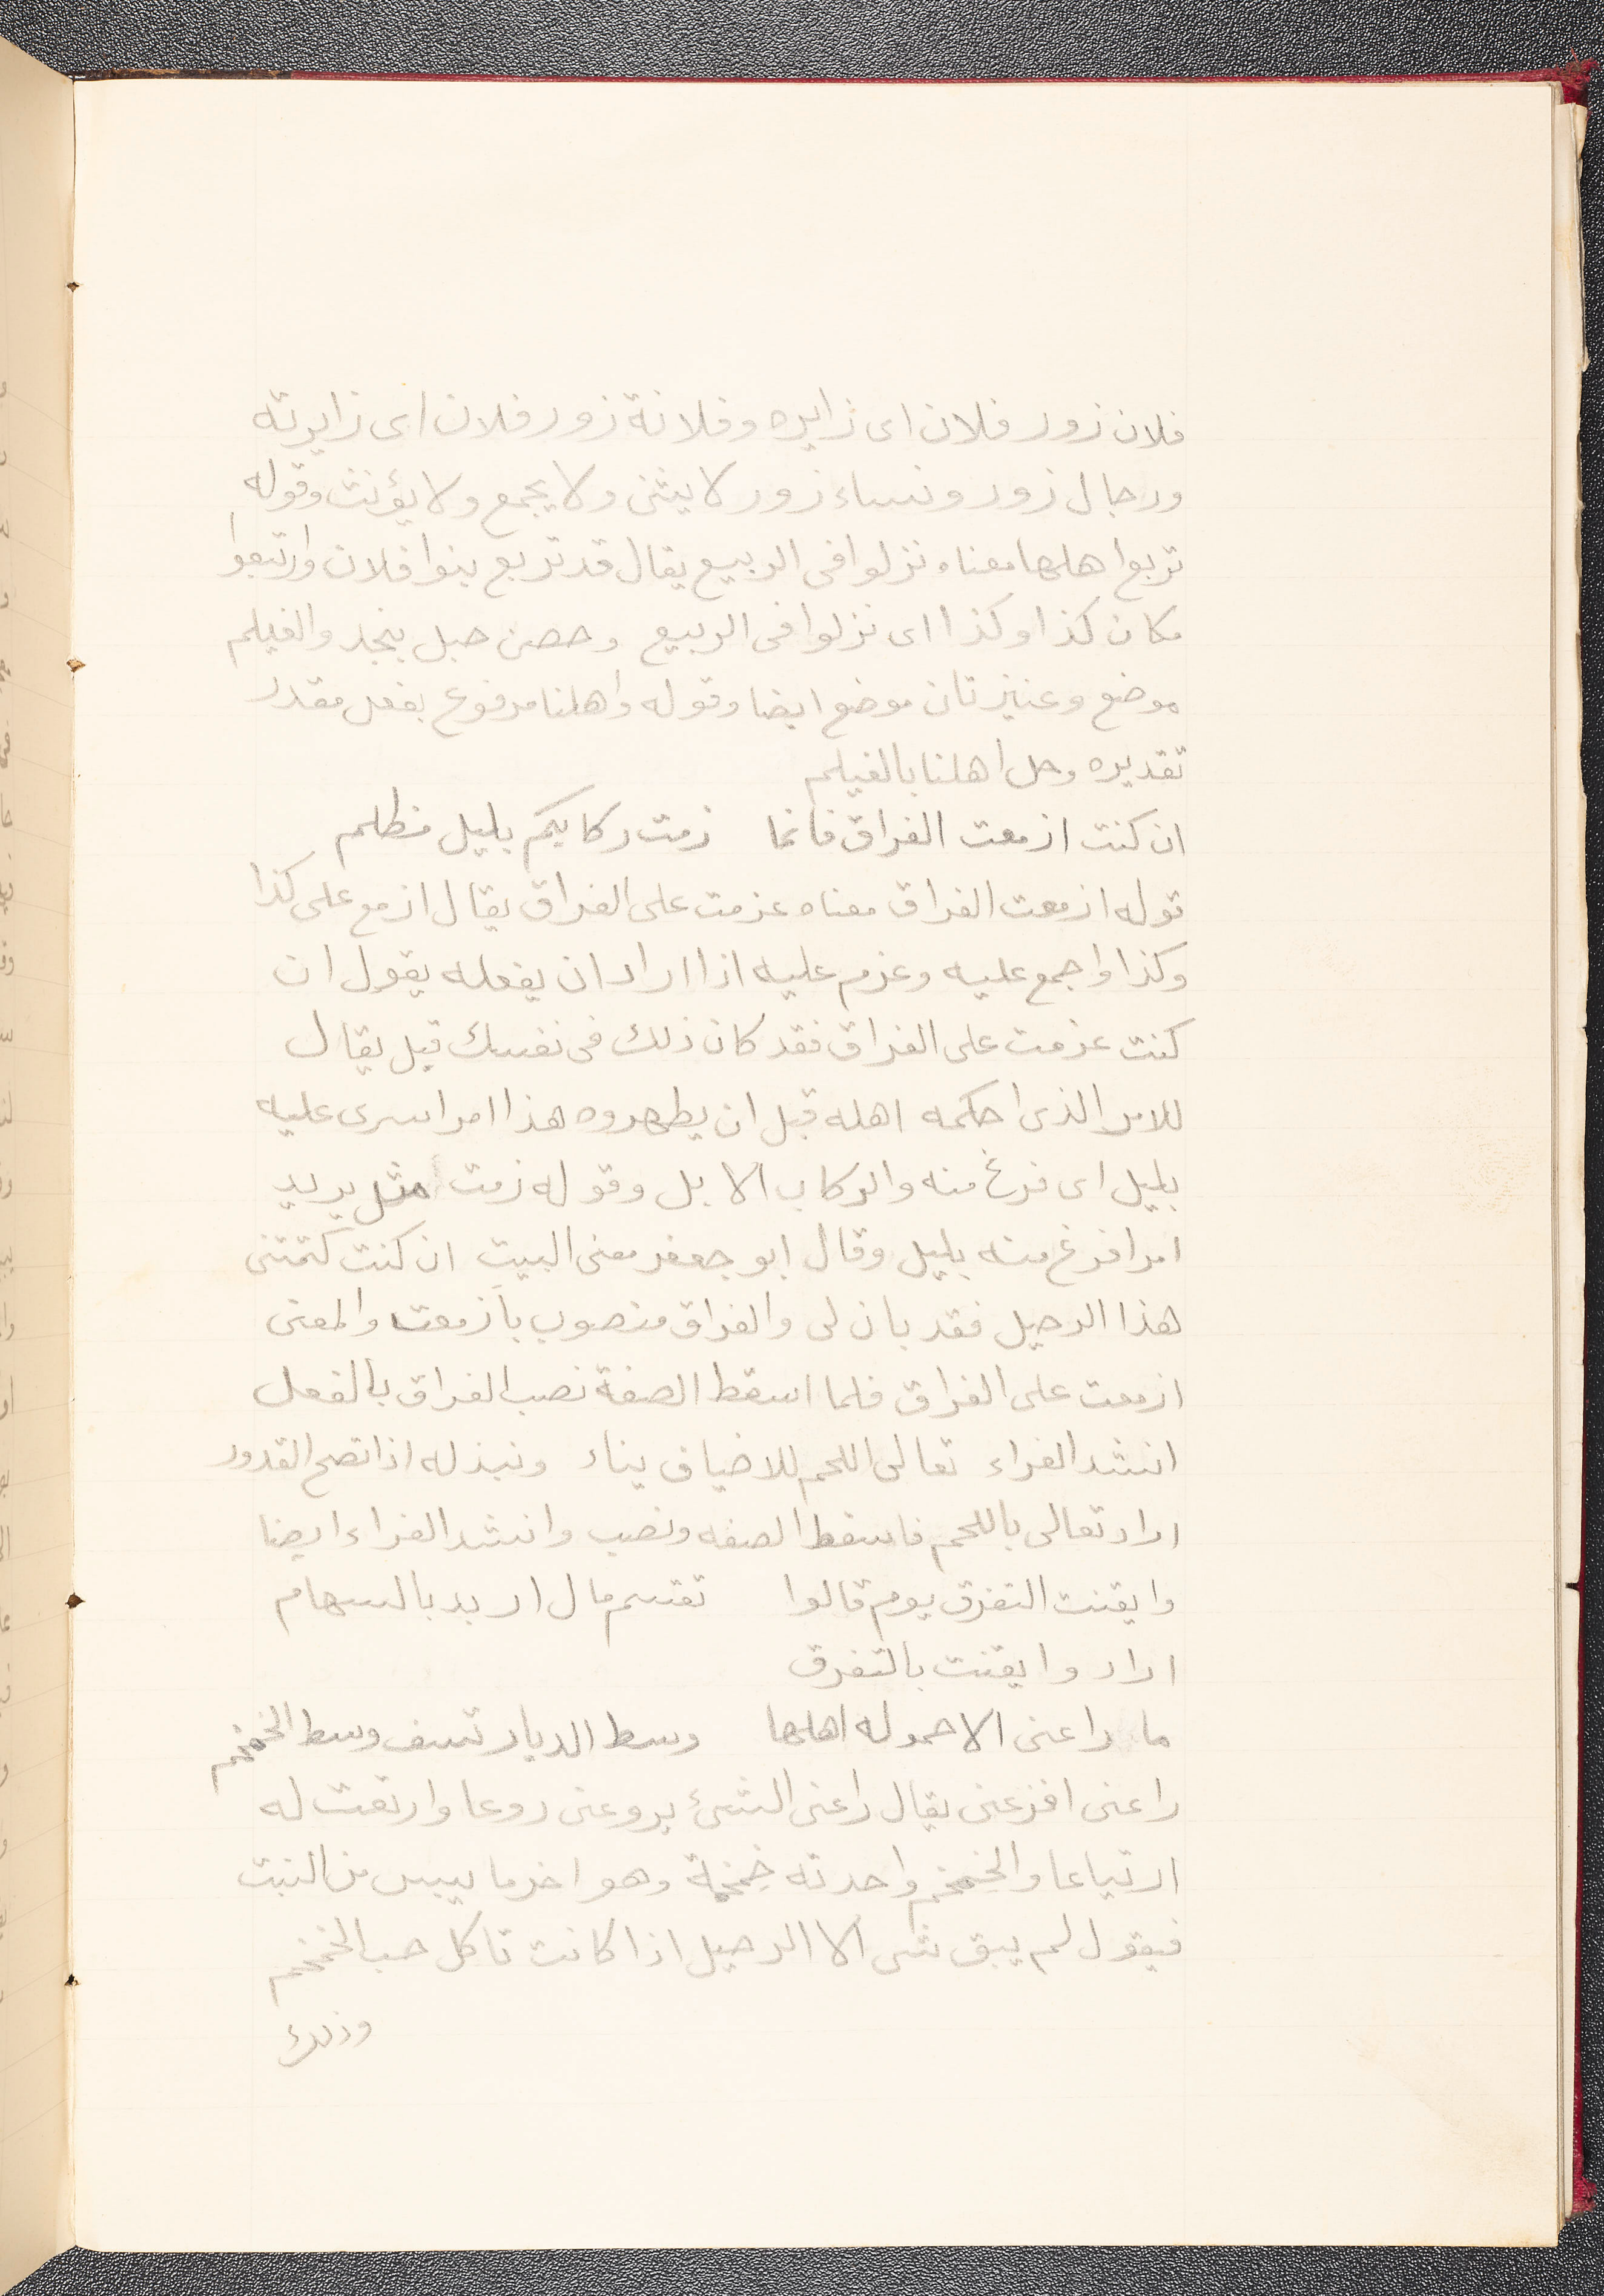 فلان زور فلان اى زايره وفلانة زور فلان اى زايرته
ورجال زور ونساء زور لا يثنى ولا يجمع ولا يؤنث وقوله
تربع اهلها معناه نزلوا فى الربيع يقال قد تربع بنوا فلان وارتبعوا
مكان كذا وكذا اى نزلوا فى الربيع وحصن جبل بنجد والغيلم
موضع وعنيزتان موضع ايضا وقوله واهلنا مرفوع بفعل مقدر
تقديره وحل اهلنا بالغيلم
ان كنت ازمعت الفراق فانما زمت ركابكم بليل مظلم
قوله ازمعت الفراق معناه عزمت على الفراق يقال ازمع على كذا
وكذا واجمع عليه وعزم عليه اذا اراد ان يفعله يقول ان
كنت عزمت على الفراق فقد كان ذلك فى نفسك قبل يقال
للامر الذى احكمه اهله قبل ان يظهروه هذا امر اسرى عليه
بليل اى فرغ منه والركاب الابل وقوله زمت مثل يريد
امرا فرغ منه بليل وقال ابو جعفر معنى البيت ان كنت كتمتنى
هذا الرحيل فقد بان لى والفراق منصوب بازمعت والمعنى
ازمعت على الفراق فلما اسقط الصفة نصب الفراق بالفعل
انشد الفراء تعالى اللحم للاضياف يناء ونبذله اذا نضج القدور
اراد تعالى باللحم فاسقط الصفه ونصب وانشد الفراء ايضا
وايقنت التفرق يوم قالوا تقسم مال اربد بالسهام
اراد وايقنت بالتفرق
ما راعنى الا حموله اهلها وسط الديار تسف وسط الخمخم
راعنى افزعنى يقال راعنى الشىء يروعنى روعا وارتعت له
ارتياعا والخمخم واحدته خمخمة وهو اخر ما ييبس من النبت
فيقول لم يبق شى الا الرحيل اذا كانت تاكل حب الخمخم
وذلك